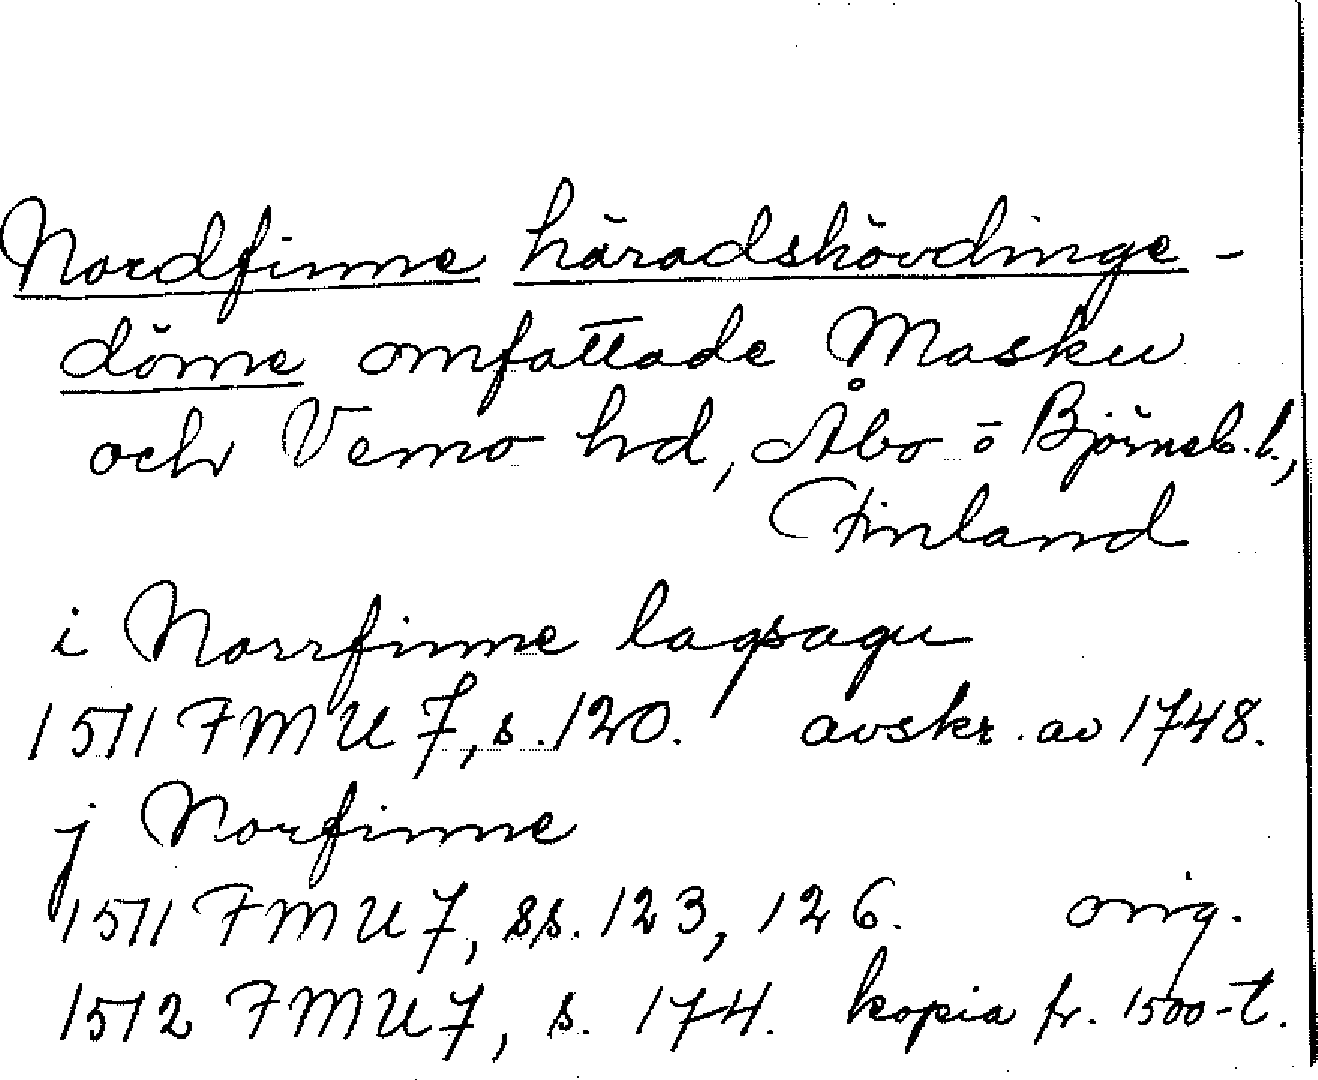 Nordfinne häradshövdinge-
döme omfattade Masku
och Vemo hd, Åbo o Björneb. l.,
Finland
i Norrfinne lagsagu
1511 FMU 7, s. 120. avskr. av 1748.
j Norfinne
1511 FMU 7, ss. 123, 126. orig.
1512 FMU 7, s. 174. kopia fr. 1500-t.